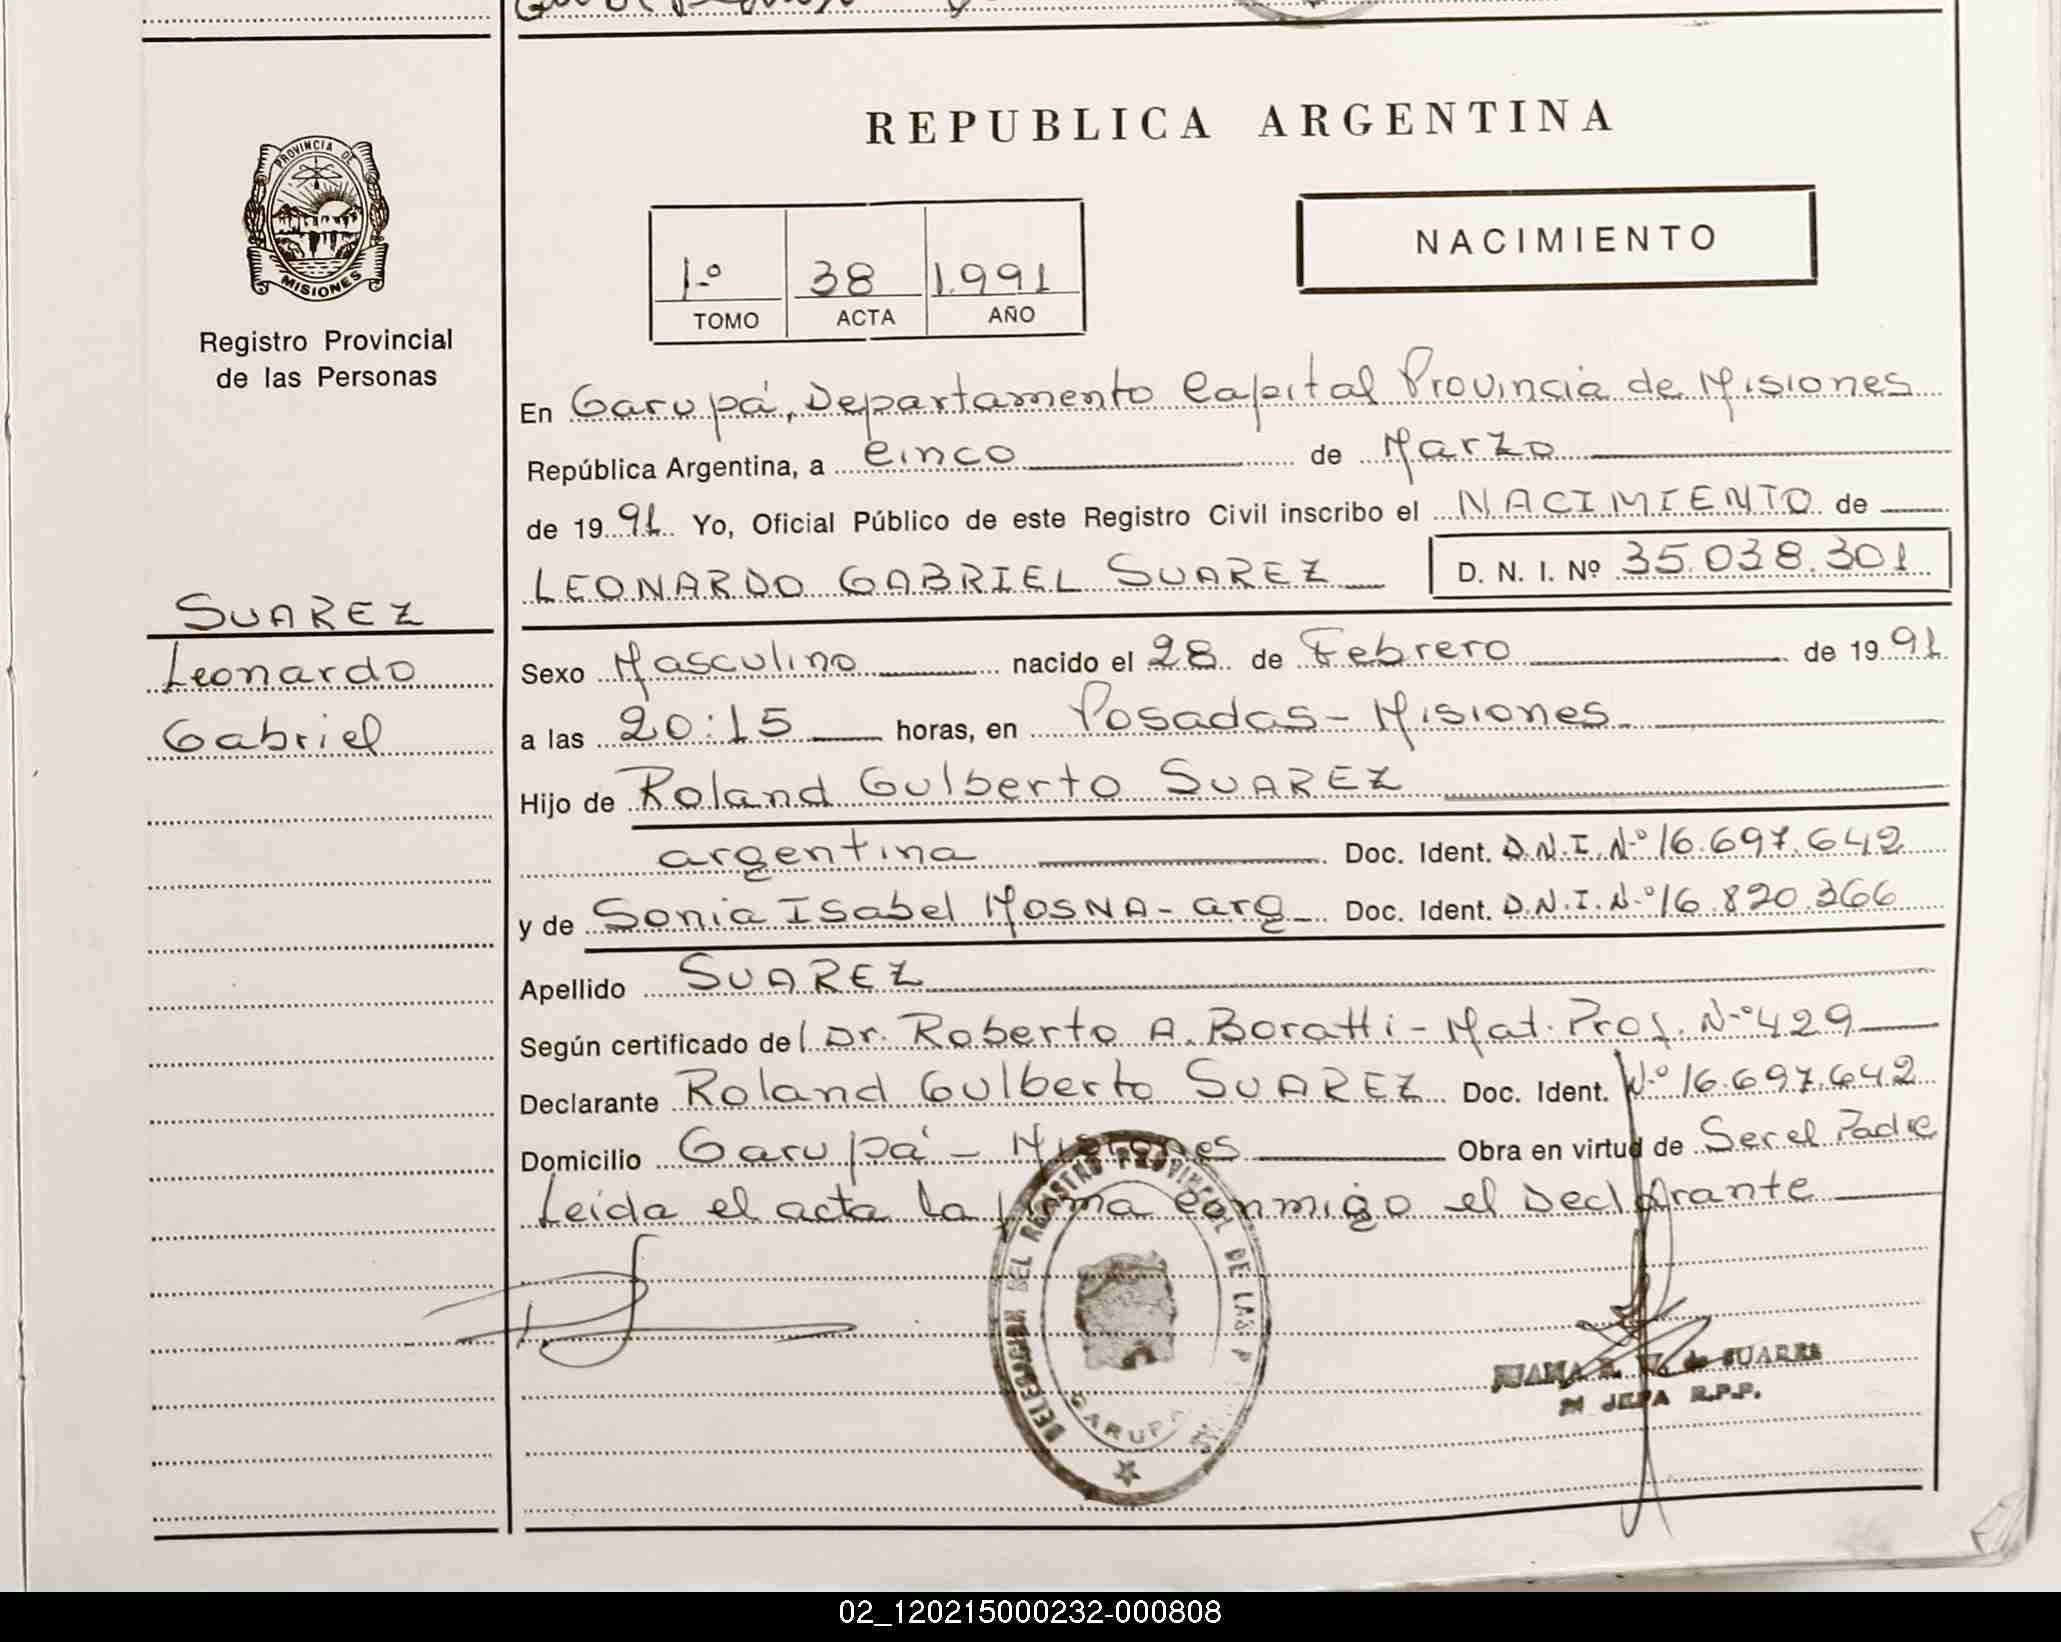 REPUBLICA ARGENTINA
PROVINCIA DE
MISIONES
Registro Provincial
de las Personas
1º 38 1.991
TOMO ACTA AÑO
NACIMIENTO
En Garupá, Departamento Capital Provincia de Misiones
República Argentina, a cinco de Marzo
de 1991 Yo, Oficial Público de este Registro Civil inscribo el NACIMIENTO de
LEONARDO GABRIEL SUAREZ D. N. I. Nº 35.038.301
SUAREZ
Leonardo
Gabriel
Sexo Masculino nacido el 28 de Febrero de 1991
a las 20:15 horas, en Posadas - Misiones
Hijo de Roland Gulberto SUAREZ
argentina Doc. Ident. D.N.I. Nº 16.697.642
y de Sonia Isabel MOSNA - arg Doc. Ident. D.N.I. Nº 16.820.366
Apellido SUAREZ
Según certificado del Dr. Roberto A. Boratti - Mat. Prof. Nº 429
Declarante Roland Gulberto SUAREZ Doc. Ident. Nº 16.697.642
Domicilio Garupá - Misiones Obra en virtud de Ser el Padre
Leida el acta la firma conmigo el Declarante
DELEGACION DEL REGISTRO PROVINCIAL DE LAS P
GARUPA
JUANA de SUAREZ
JEFA R.P.P.
02_120215000232-000808